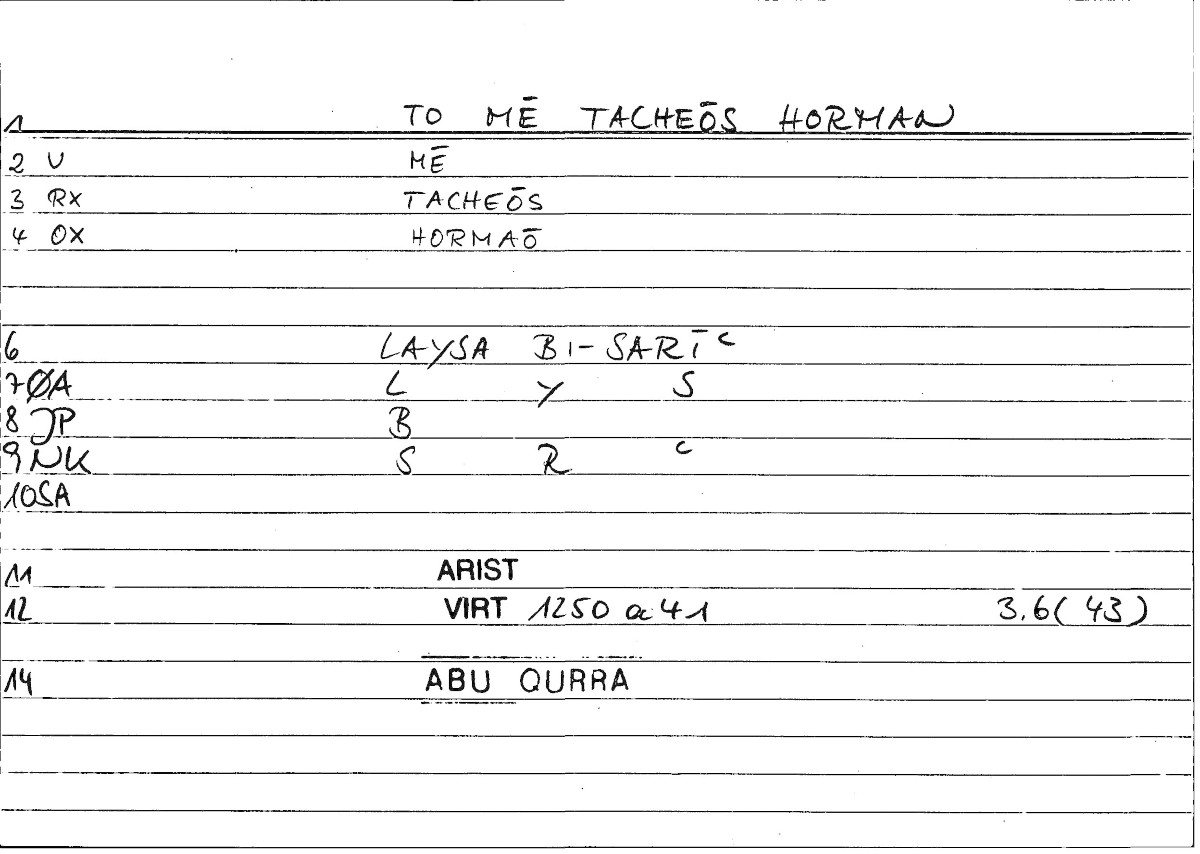 1 TO MĒ TACHEŌS HORMAN
2 U MĒ
3 RX TACHEŌS
4 OX HORMAŌ
6 LAYSA BI-SARĪᶜ
7 ØA L Y S
8 JP B
9 NK S R ᶜ
10 SA
11 ARIST
12 VIRT 1250 a 41 3.6(43)
14 ABU QURRA